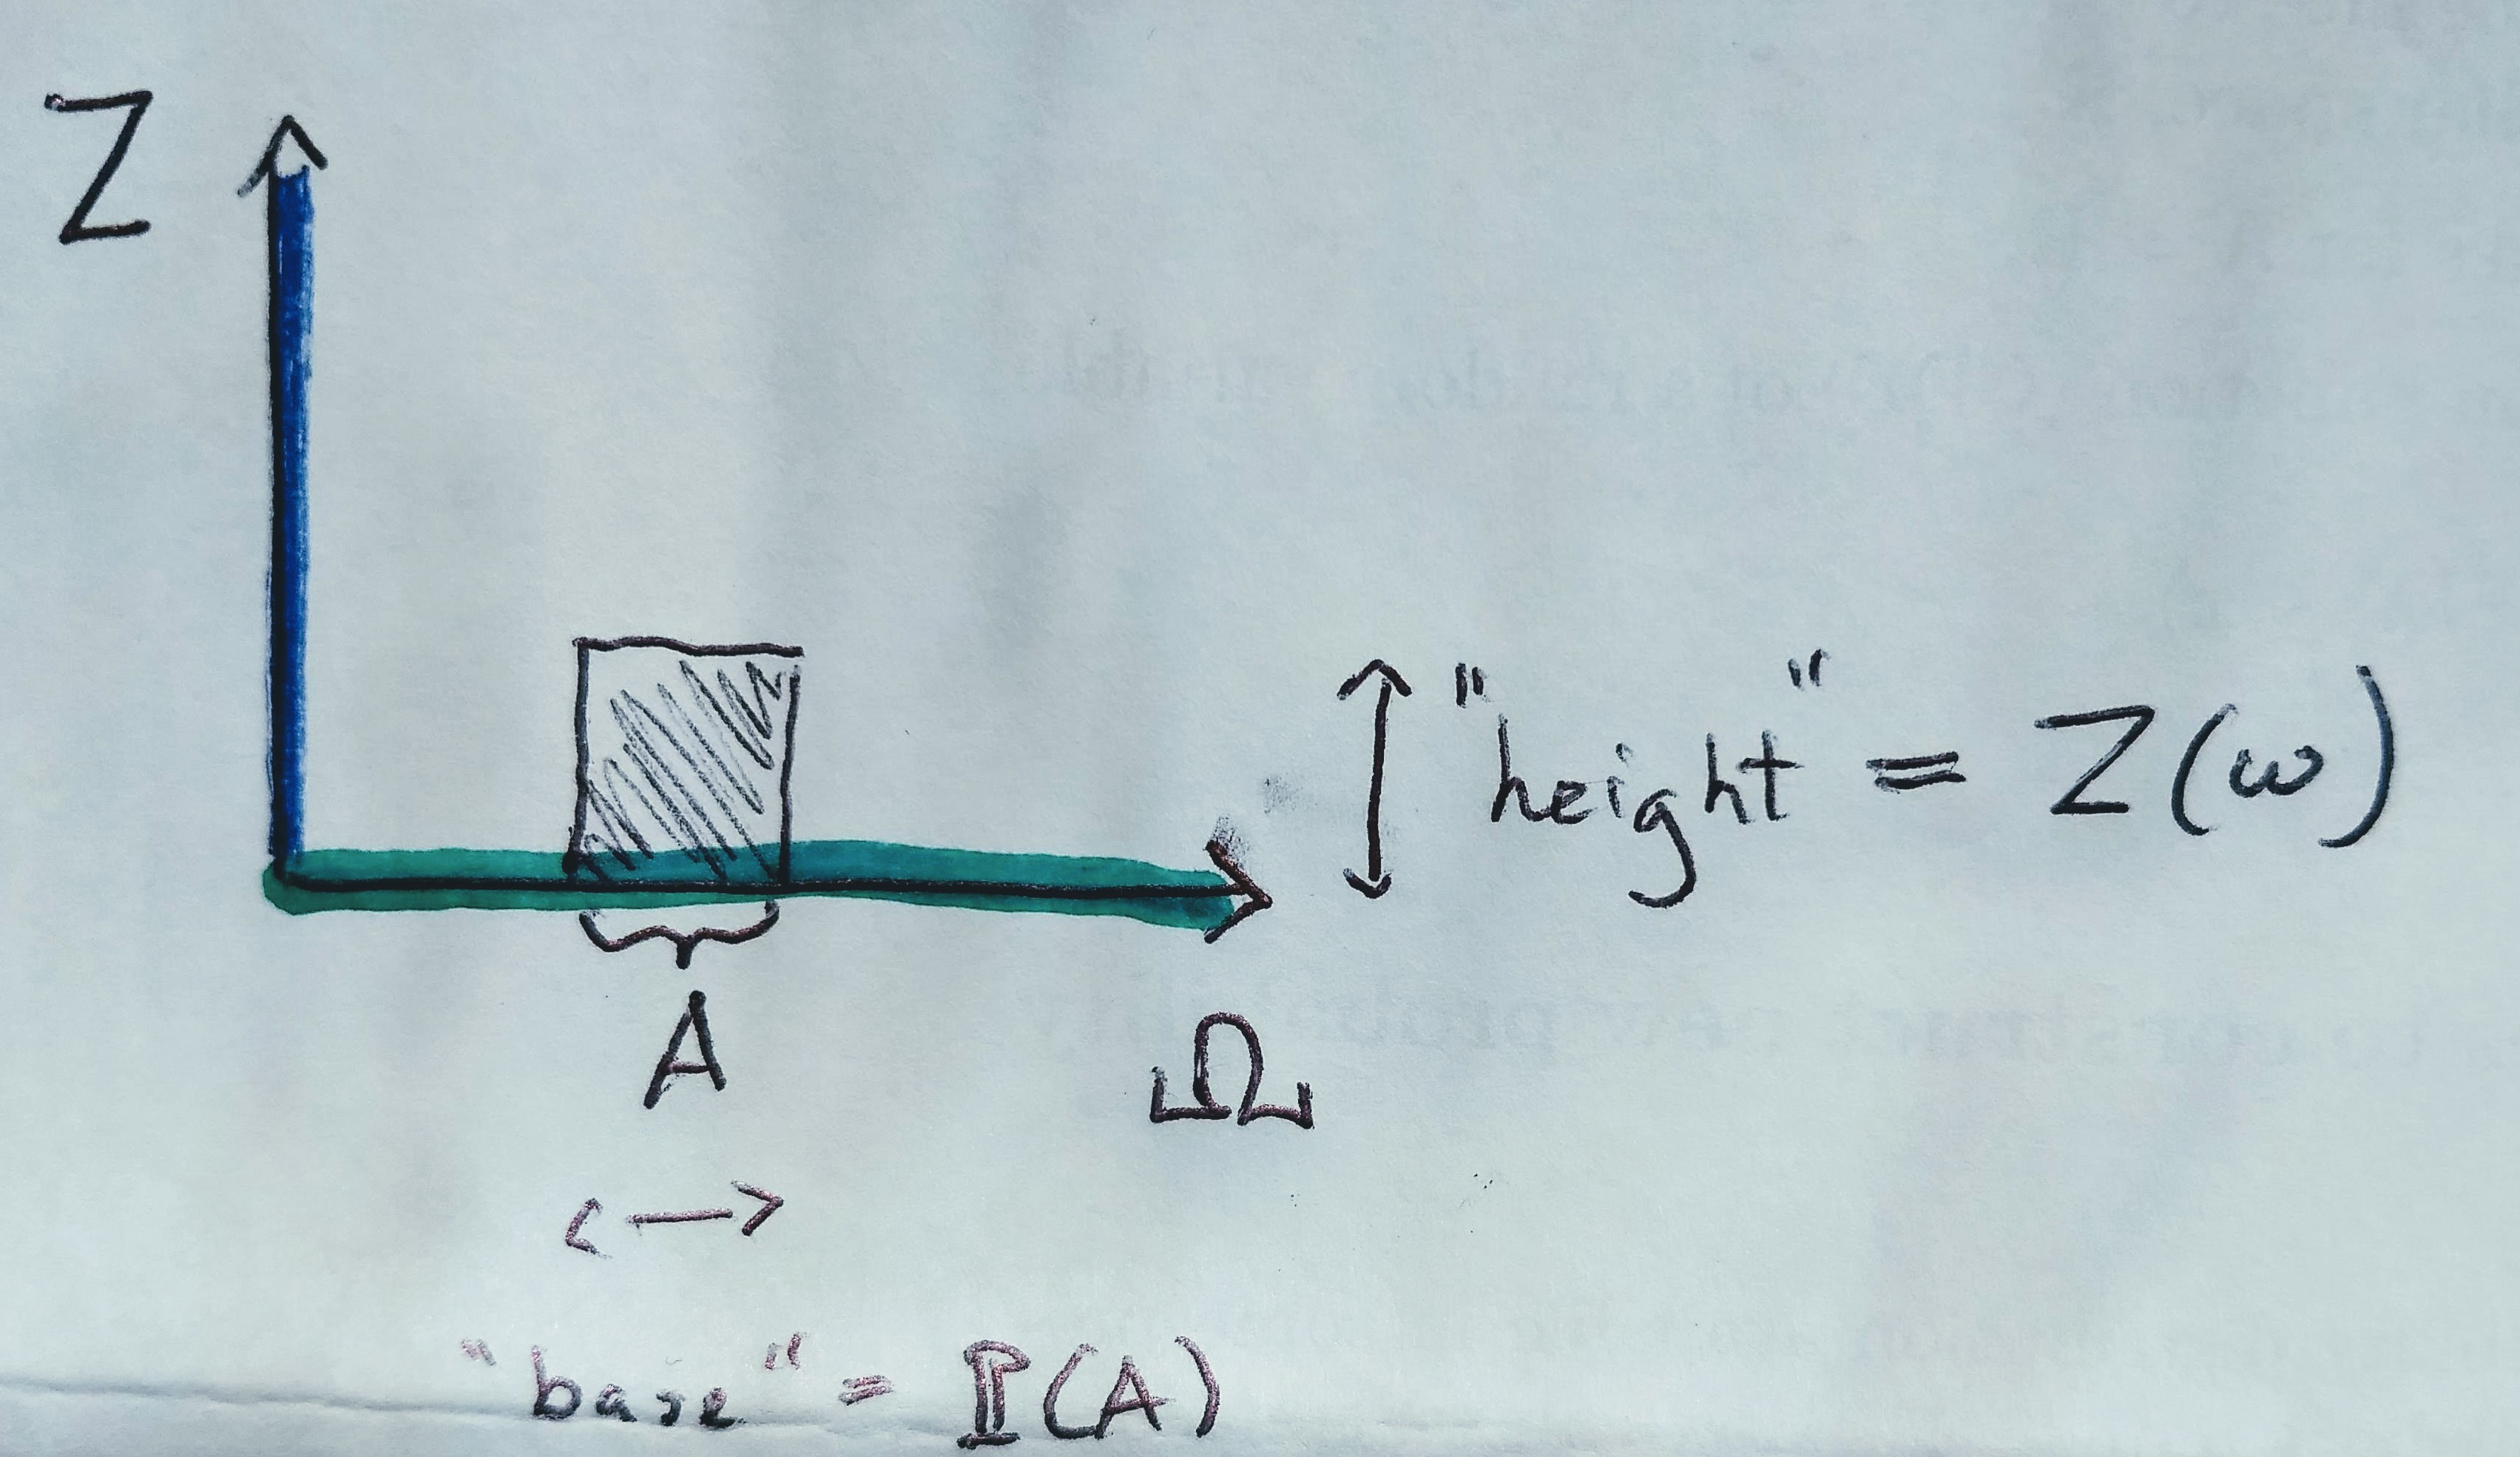 Z
"height" = Z(ω)
A
Ω
"base" = ℙ(A)